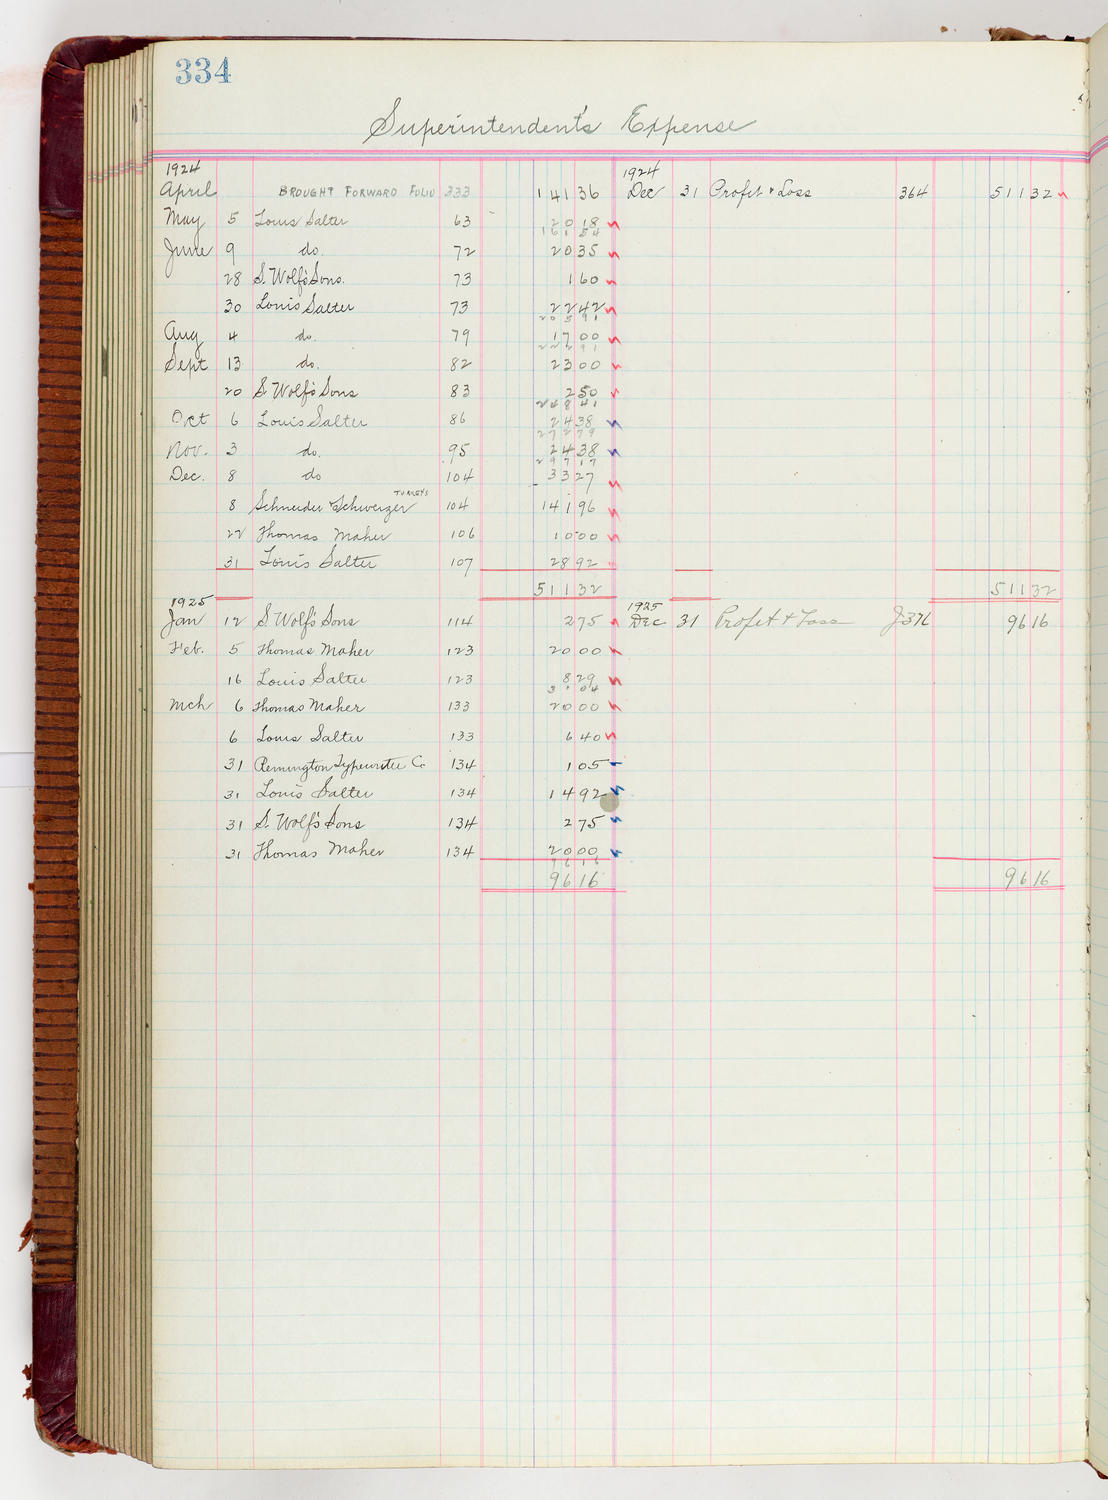 334
Superintendent's Expense
1924 1924
April BROUGHT FORWARD FOLIO 333 141 36 Dec 31 Profit & Loss 364 511 32
May 5 Louis Salter 63 20 18
161 54
June 9 do. 72 20 35
28 S. Wolf's Sons. 73 1 60
30 Louis Salter 73 22 42
205 91
Aug 4 do. 79 17 00
222 91
Sept 13 do. 82 23 00
20 S. Wolf's Sons 83 2 50
248 41
Oct 6 Louis Salter 86 24 38
272 79
Nov. 3 do. 95 24 38
297 17
Dec. 8 do 104 33 27
TURKEYS
8 Schneider & Schweizer 104 141 96
22 Thomas Maher 106 10 00
31 Louis Salter 107 28 92
511 32 511 32
1925 1925
Jan 12 S. Wolf's Sons 114 2 75 Dec 31 Profit & Loss J376 96 16
Feb. 5 Thomas Maher 123 20 00
16 Louis Salter 123 8 29
31 04
Mch 6 Thomas Maher 133 20 00
6 Louis Salter 133 6 40
31 Remington Typewriter Co 134 1 05
31 Louis Salter 134 14 92
31 S. Wolf's Sons 134 2 75
31 Thomas Maher 134 20 00
96 16
96 16 96 16